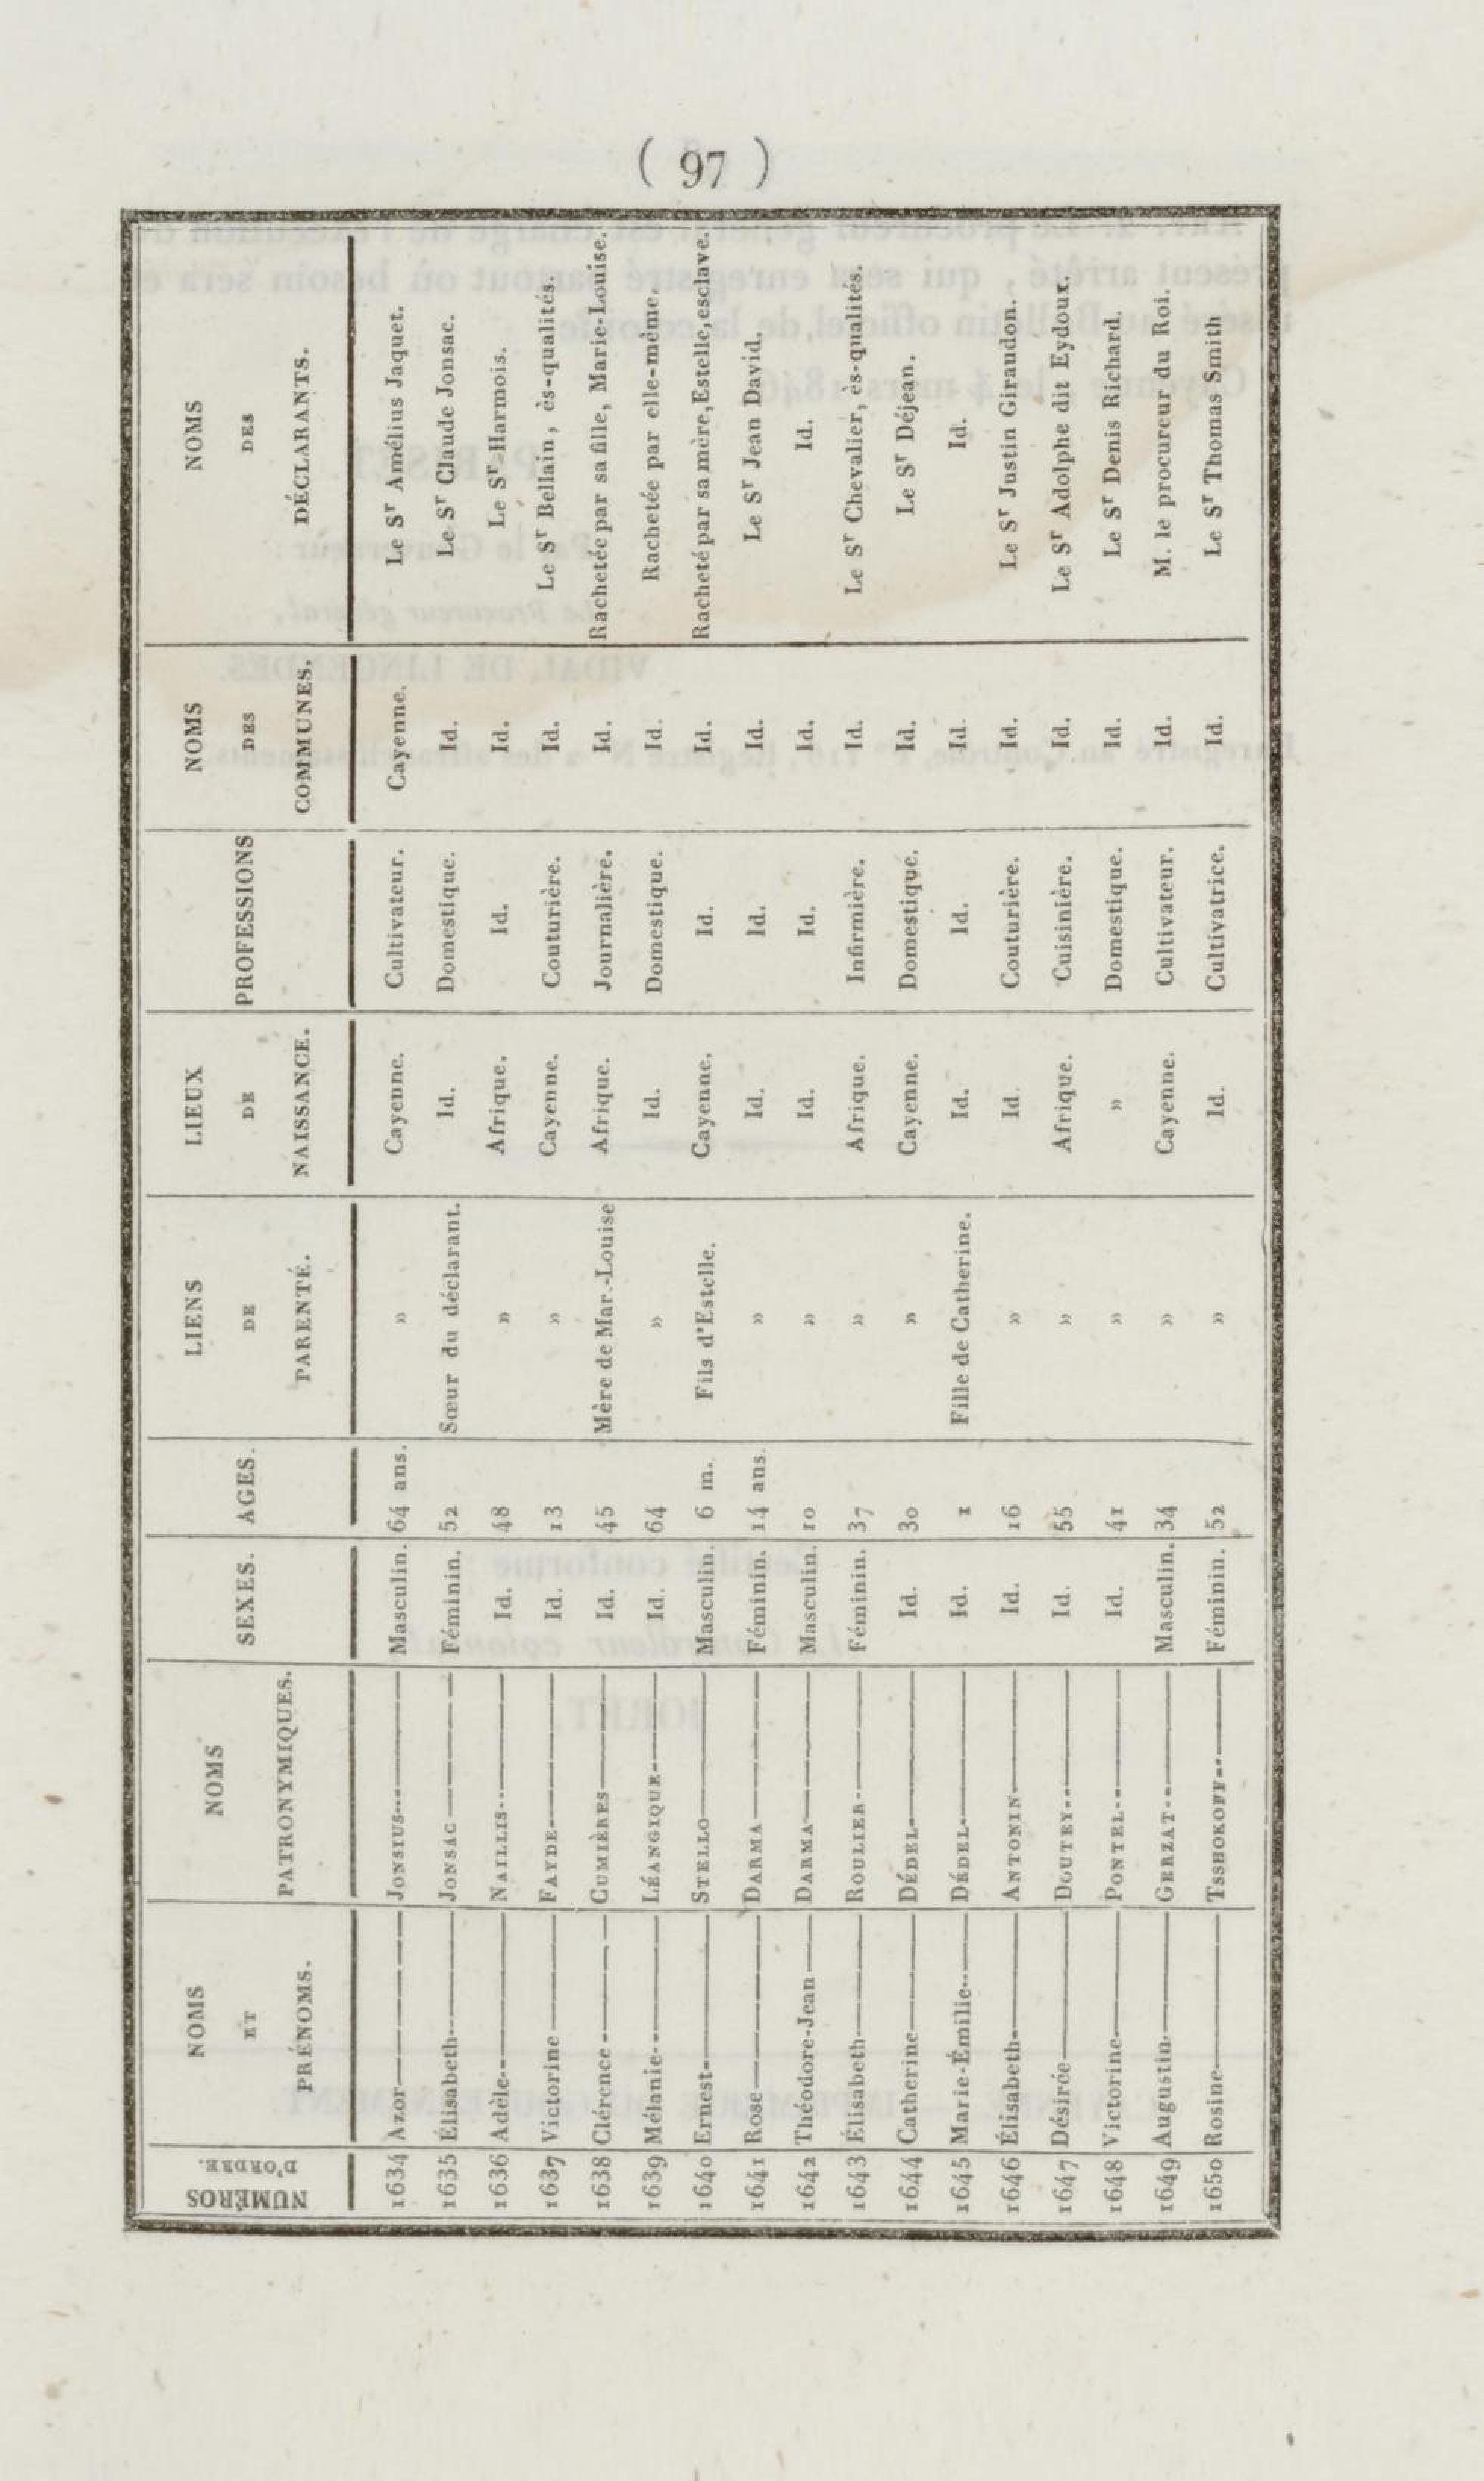 ( 97 )
NUMÉROS D'ORDRE. | NOMS ET PRÉNOMS. | NOMS PATRONYMIQUES. | SEXES. | AGES. | LIENS DE PARENTÉ. | LIEUX DE NAISSANCE. | PROFESSIONS | NOMS DES COMMUNES. | NOMS DES DÉCLARANTS.
1634 | Azor | JONSIUS | Masculin. | 64 ans. | » | Cayenne. | Cultivateur. | Cayenne. | Le Sr Amélius Jaquet.
1635 | Élisabeth | JONSAC | Féminin. | 52 | Sœur du déclarant. | Id. | Domestique. | Id. | Le Sr Claude Jonsac.
1636 | Adèle | NAILLIS | Id. | 48 | » | Afrique. | Id. | Id. | Le Sr Harmois.
1637 | Victorine | FAYDE | Id. | 13 | » | Cayenne. | Couturière. | Id. | Le Sr Bellain, ès-qualités.
1638 | Clérence | CUMIÈRES | Id. | 45 | Mère de Mar.-Louise | Afrique. | Journalière. | Id. | Rachetée par sa fille, Marie-Louise.
1639 | Mélanie | LÉANGIQUE | Id. | 64 | » | Id. | Domestique. | Id. | Rachetée par elle-même.
1640 | Ernest | STELLO | Masculin. | 6 m. | Fils d'Estelle. | Cayenne. | Id. | Id. | Racheté par sa mère, Estelle, esclave.
1641 | Rose | DARMA | Féminin. | 14 ans. | » | Id. | Id. | Id. | Le Sr Jean David.
1642 | Théodore-Jean | DARMA | Masculin. | 10 | » | Id. | Id. | Id. | Id.
1643 | Élisabeth | ROULIER | Féminin. | 37 | » | Afrique. | Infirmière. | Id. | Le Sr Chevalier, ès-qualités.
1644 | Catherine | DÉDEL | Id. | 30 | » | Cayenne. | Domestique. | Id. | Le Sr Déjean.
1645 | Marie-Émilie | DÉDEL | Id. | 1 | Fille de Catherine. | Id. | Id. | Id. | Id.
1646 | Élisabeth | ANTONIN | Id. | 16 | » | Id | Couturière. | Id. | Le Sr Justin Giraudon.
1647 | Désirée | DOUTEY | Id. | 55 | » | Afrique. | Cuisinière. | Id. | Le Sr Adolphe dit Eydoux.
1648 | Victorine | PONTEL | Id. | 41 | » | » | Domestique. | Id. | Le Sr Denis Richard.
1649 | Augustin | GERZAT | Masculin. | 34 | » | Cayenne. | Cultivateur. | Id. | M. le procureur du Roi.
1650 | Rosine | TSSHOKOFF | Féminin. | 52 | » | Id. | Cultivatrice. | Id. | Le Sr Thomas Smith